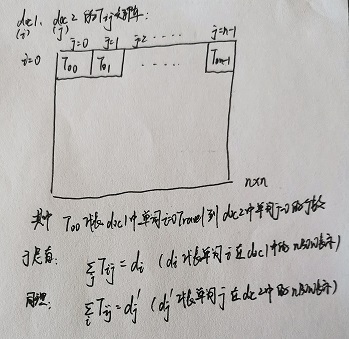 doc1、doc2 的Tij矩阵:
(i) (j)
j=0 j=1 j=2 ..... j=n-1
i=0 T00 T01 ..... T0n-1
n×n
其中 T00 代表doc1中单词i=0 Travel 到doc2中单词j=0的
于是有: Σj Tij = di (di 代表单词i在doc1中的nBOW表示)
同理: Σi Tij = dj' (dj' 代表单词j在doc2中的nBOW表示)